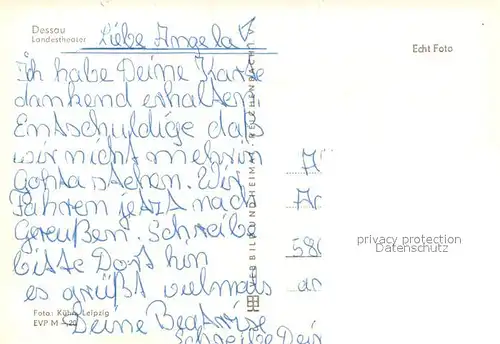 Dessau
Landestheater
Liebe Angela
Echt Foto
Ich habe Deine Karte
dankend erhalten
Entschuldige daß
wir nicht mehr in
Gotha stehen. Wir
Fahren jetzt nach
Greußen. Schreibe
bitte Dort hin
es grüßt vielmals
Foto: Kühn, Leipzig
EVP M –,20
Deine Beatrise
Schreibe Dein
VERLAG BILD UND HEIMAT · REICHENBACH I. V.
A
An
580
an
privacy protection
Datenschutz